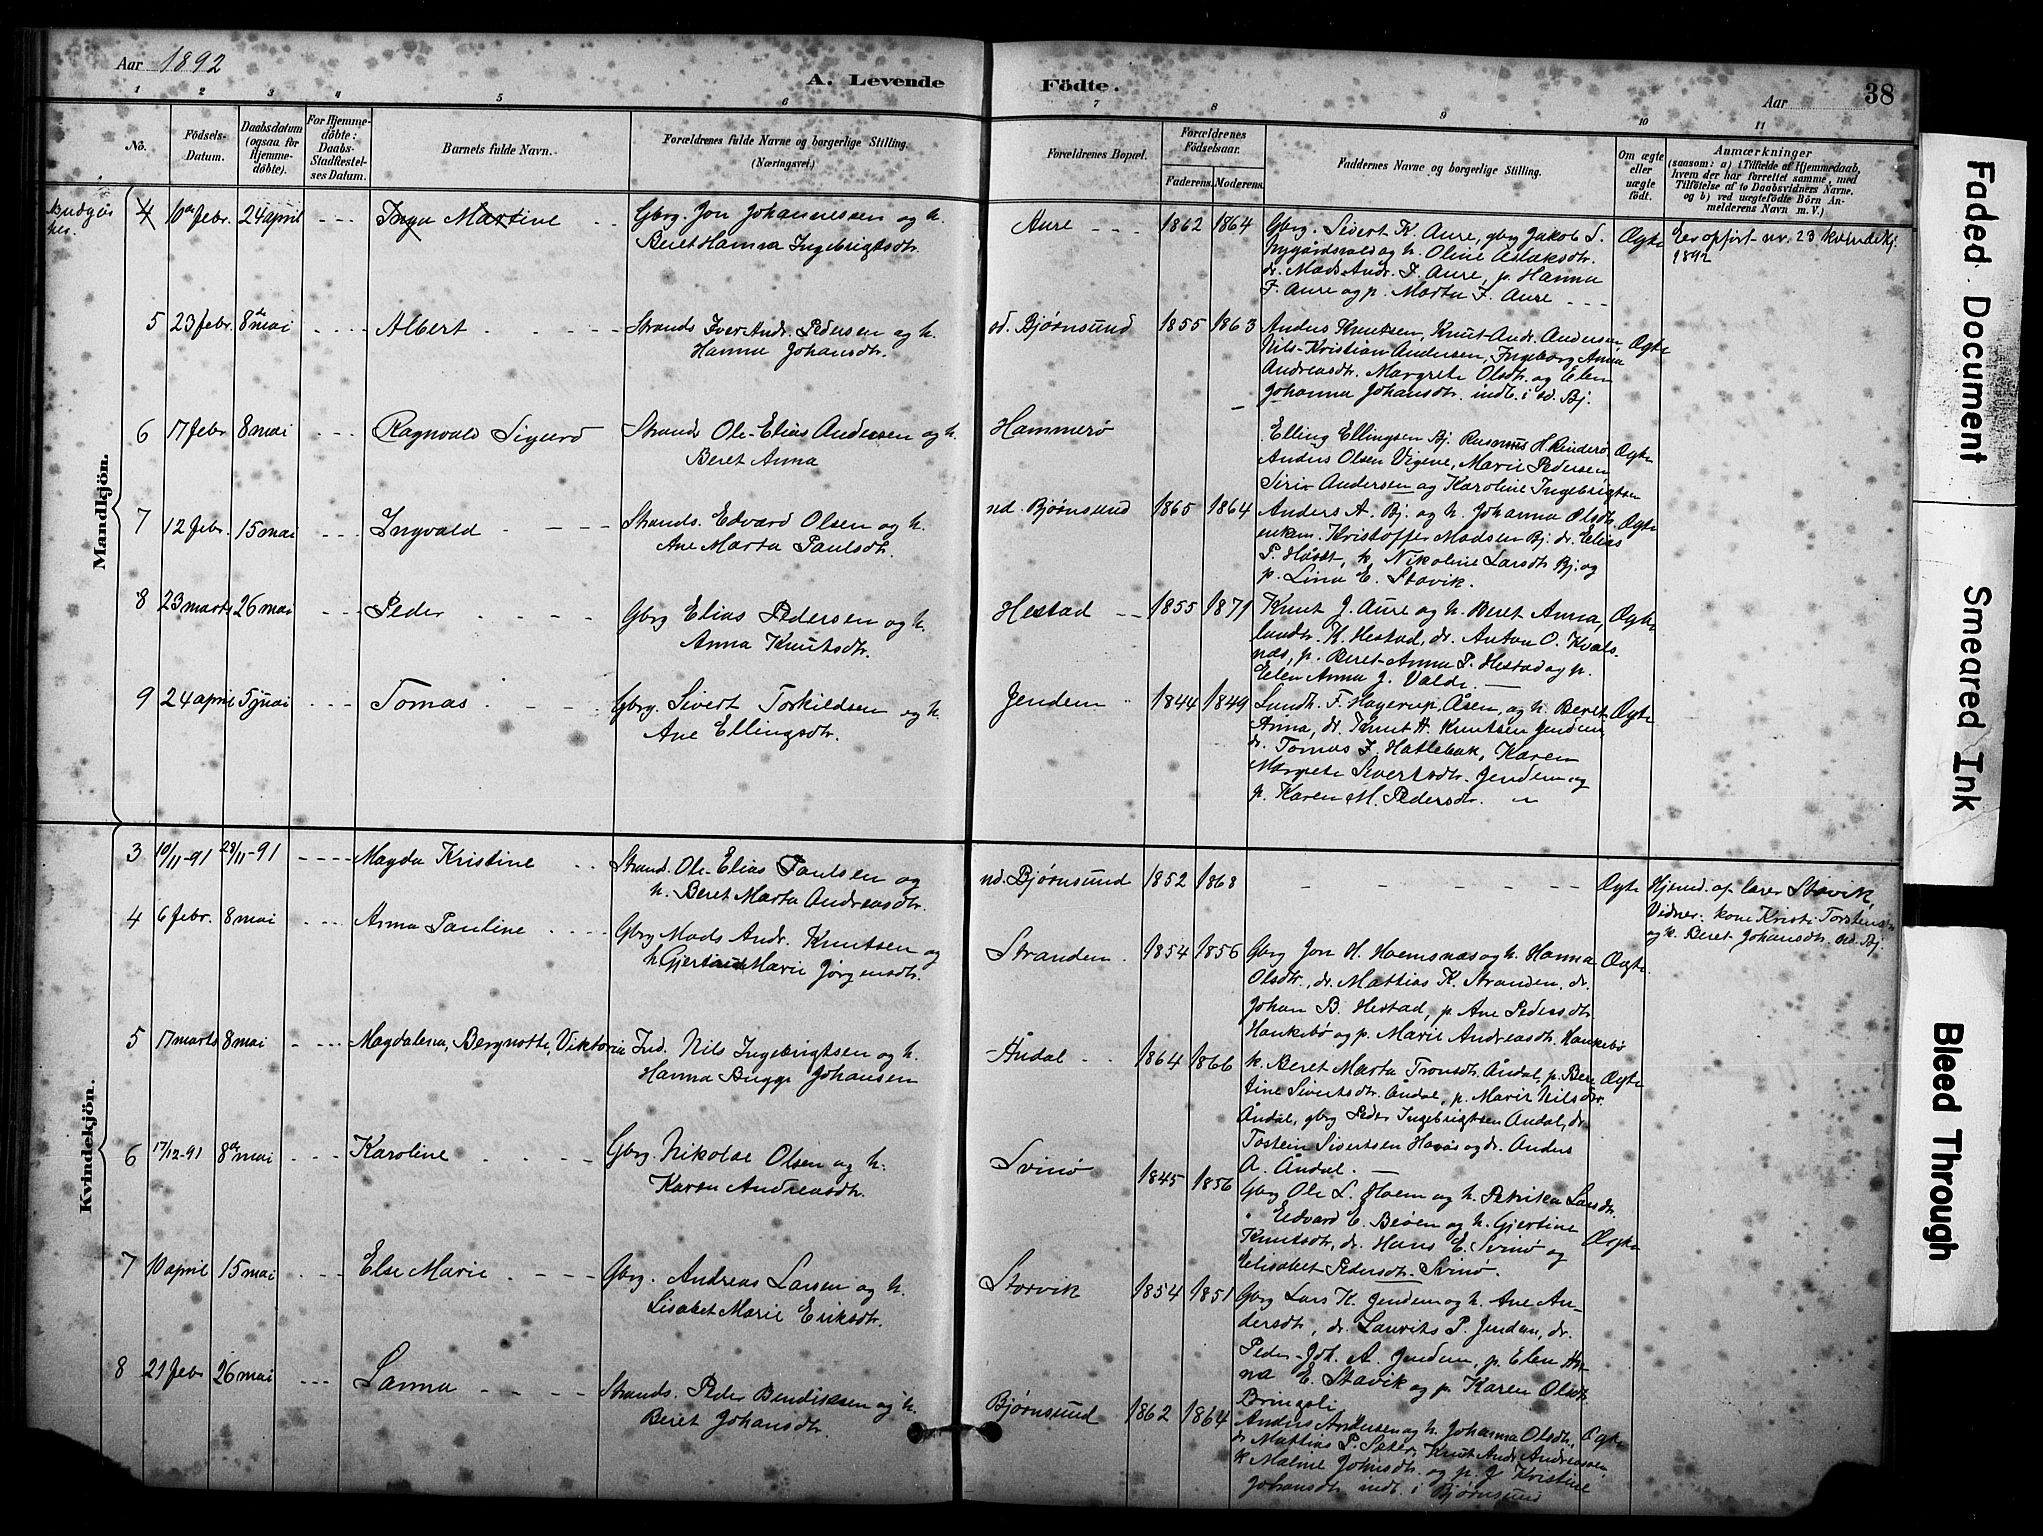 Aar 1892
A. Levende Födte.
Aar
38
1 2 3 4 5 6 7 8 9 10 11
No.
Födsels-Datum.
Daabsdatum (ogsaa for Hjemmedöbte).
For Hjemmedöbte: Daabs-Stadfæstelses Datum.
Barnets fulde Navn.
Forældrenes fulde Navne og borgerlige Stilling.
(Næringsvei.)
Forældrenes Bopæl.
Forældrenes Födselsaar.
Faderens. Moderens.
Faddernes Navne og borgerlige Stilling.
Om ægte eller uægte födt.
Anmærkninger
(saasom: a) i Tilfælde af Hjemmedaab, hvem der har forrettet samme, med Tilföielse af to Daabsvidners Navne. og b) ved uægtefödte Börn Anmelderens Navn m. V.)
Mandkjön.
4 10de febr. 24 april - - - Inga Martine - Gbrg. Jon Johannessen og h.
Beret Hanna Ingebrigtsdtr.
Aure - - - 1862 1864
Gbrg. Sivert K. Aure, gbrg Jakob S.
Nygårdsvold og h. Oline Aslaksdtr.
dr. Mads Andr. F. Aure, p. Hanna
F. Aure og p. Marta F. Aure - - -
Ægte
Er opført nr. 23 kvindekj.
1892
5 23 febr. 8de mai - - - Albert - - - Strands. Iver Andr. Pedersen og h.
Hanna Johansdtr.
od. Bjørnsund 1855 1863
Anders Knutsen, Knut Andr. Andersen,
Nils Kristian Andersen, Ingeborg Anna
Andreasdtr. Margrete Olsdtr. og Elen
Johanna Johansdtr. indb. i od. Bj.
Ægte
6 17 febr 8 mai - - - Ragnvald Sigurd Strands Ole-Elias Andersen og h.
Beret Anna
Hammerø
Elling Ellingsen Bj. Rasmus H. Rinderø
Anders Olsen Vigene, Marie Pedersen
Siri Andersen og Karoline Ingebrigtsen
Ægte
7 12 febr. 15 mai - - - Ingvald - - - Strands. Edvard Olsen og h.
Ane Marta Paulsdtr.
nd. Bjørnsund 1865 1864
Anders A. Bj. og h. Johanna Olsdtr.
enkem. Kristoffer Madsen Bj. dr. Elias
P. h. Nikoline Larsdtr Bj. og
p. Lina E. Stavik.
Ægte
8 23 marts 26 mai - - - Peder - - - Gbrg Elias Pedersen og h.
Anna Knutsdtr.
Hestad - - 1855 1871
Knut J. Aure og h. Beret Anna,
landh. K. Hestad, dr. Anton O. Kvals-
næs, p. Beret-Anna P. Hestad og p.
Elen Anna J. Valde.
Ægte
9 24 april 5 juni - - - Tomas - - - Gbrg. Sivert Torkildsen og h.
Ane Ellingsdtr.
Jendem 1844 1849
Landh. F. Hagerup, Åsen, og h. Beret
Anna, dr. Knut H. Knutsen Jendem,
dr. Tomas J. Hatlebak, Karen
Margrete Sivertsdtr. Jendem og
p. Karen M. Pedersdtr.
Ægte
Kvindekjön.
3 10/11-91 28/11-91 - - - - Magda Kristine - - Strand. Ole-Elias Paulsen og
h. Beret Marta Andreasdtr.
nd. Bjørnsund 1852 1868
- - - - - Ægte
Hjemd. af lærer Stavik,
Vidner: kone Kristi Torstensdtr
og k. Beret Johansdtr. nd. Bj.
4 6 febr. 8 mai - - - Anna Pauline - - - Gbrg Mads Andr. Knutsen og
h. Gjertrud Marie Jørgensdtr.
Stranden 1854 1856
Gbrg Jon H. Hoemsnæs og h. Hanna
Olsdtr., dr. Mattias K. Stranden, dr.
Johan B. Hestad, p. Ane Pedersdtr
Haukebø og p. Marie Andreasdtr. Haukebø
Ægte.
5 17 marts 8 mai - - - Magdalena, Bergnotte, Viktoria Ind. Nils Ingebrigtsen og h.
Hanna Bugge Johansen
Åndal - - 1864 1866
k. Beret Marta Tronsdtr. Åndal, p. Ber-
tine Sivertsdtr. Åndal, p. Marit Nilsdtr.
Åndal, gbrg Peder Ingebrigtsen Åndal, dr.
Tostein Sivertsen og dr. Anders
A. Åndal.
Ægte
6 17/12-91 8de mai - - - Karoline - - - Gbrg. Nikolai Olsen og h.
Karen Andreasdtr.
Svinø 1845 1856
Gbrg Ole L. Hoem og h. Petrika Larsdtr.
" Edvard E. Beøen og h. Gjertine
Knutsdtr, dr. Hans E. Svinø og
Elisabet Pedersdtr. Svinø.
Ægte
7 10 april 15 mai - - - Else Marie - - - Gbrg. Andreas Larsen og h.
Lisabet Marie Eriksdtr.
Storvik 1854 1851
Gbrg Lars K. Jendem og h. Ane An-
dersdtr, dr. Laurits P. Jendem, dr.
Peder-Joh. A. Jendem, p. Elen An-
na E. Stavik og p. Karen Olsdtr.
Bringsli
8 21 febr 26 mai - - - Lanna - - - Strands. Peder Bendiksen og h.
Beret Johansdtr.
Bjørnsund 1862 1864
Anders Andersen og h. Johanna Olsdtr.
dr Mattias P. Sæter, Knut Andr. Andreassen
k Malene Johnsdtr. og p. J Kristine
Johansdtr indb. i Bjørnsund
Ægte
Faded Document
Smeared Ink
Bleed Through